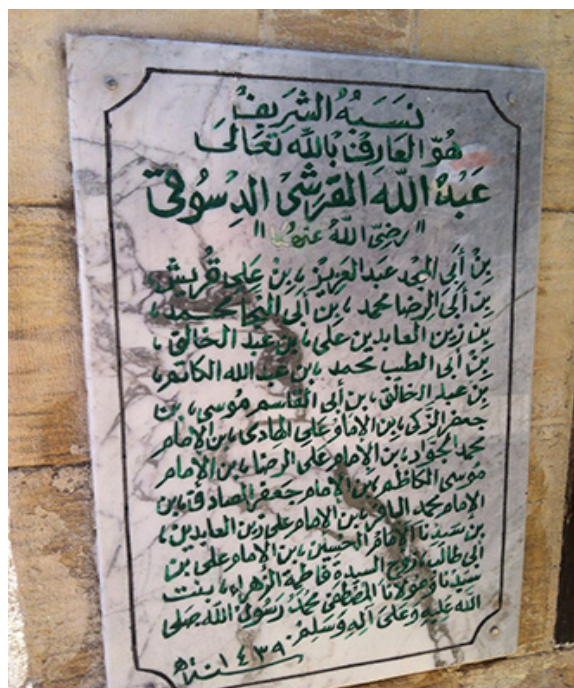 نَسَبُهُ الشَرِيفُ
هُوَ العَارِفُ بِاللَّهِ تَعَالَى
عَبْدُ اللَّه القُرَشِى الدِسُوقى
"رَضِىَ اللَّهُ عَنْهُمَا"
بْنُ أَبِى المجد عَبد العَزِيز ، بِن عَلى قُرَيش ،
بن أبى الرضا محمد ، بن أبى النجا محمد ،
بن زين العابدين على ، بن عبد الخالق ،
بن أبى الطيب محمد ، بن عبد الله الكاتم ،
بن عبد الخالق ، بن أبى القاسم موسى ، بن
جعفر الزكى ، بن الإمام على الهادى ، بن الإمام
محمد الجواد ، بن الإمام على الرضا ، بن الإمام
موسى الكاظم ، بن الإمام جعفر الصادق ، بن
الإمام محمد الباقر ، بن الإمام على زين العابدين ،
بن سيدنا الإمام الحسين ، بن الإمام على بن
أبى طالب ، زوج السيدة فاطمة الزهراء ، بنت
سيدنا ومولانا المصطفى محمد رسول الله صلى
الله عليه وعلى آله وسلم .
سنة ١٤٣٩ هـ